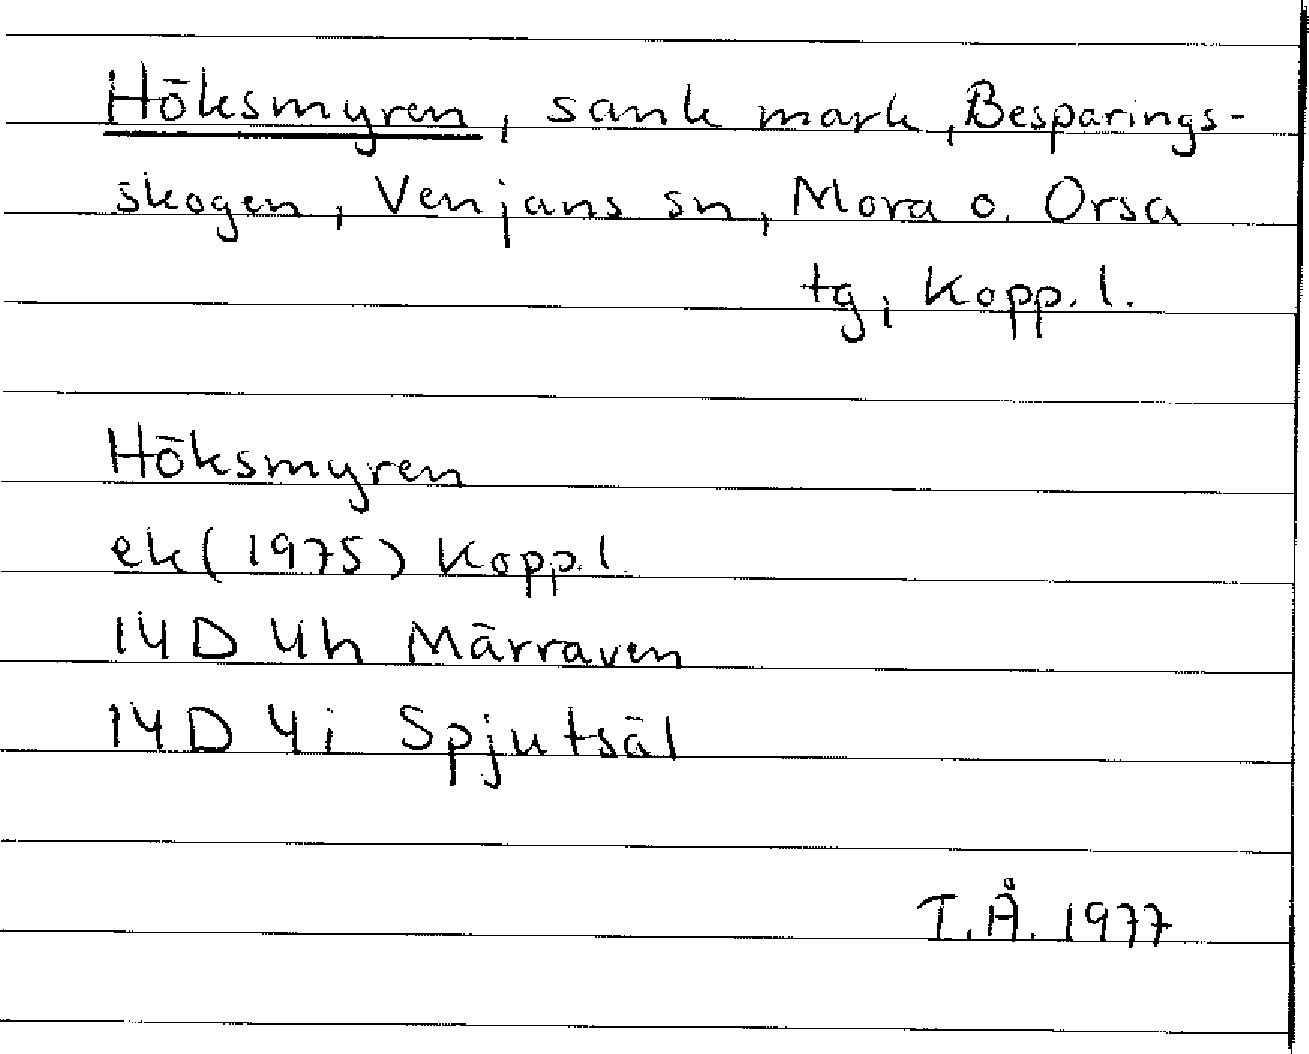 Höksmyren, sank mark, Besparings-
skogen, Venjans sn, Mora o. Orsa
tg, Kopp. l.
Höksmyren
ek (1975) Kopp. l
14D 4h Märraven
14D 4i Spjutsäl
T.Å. 1977